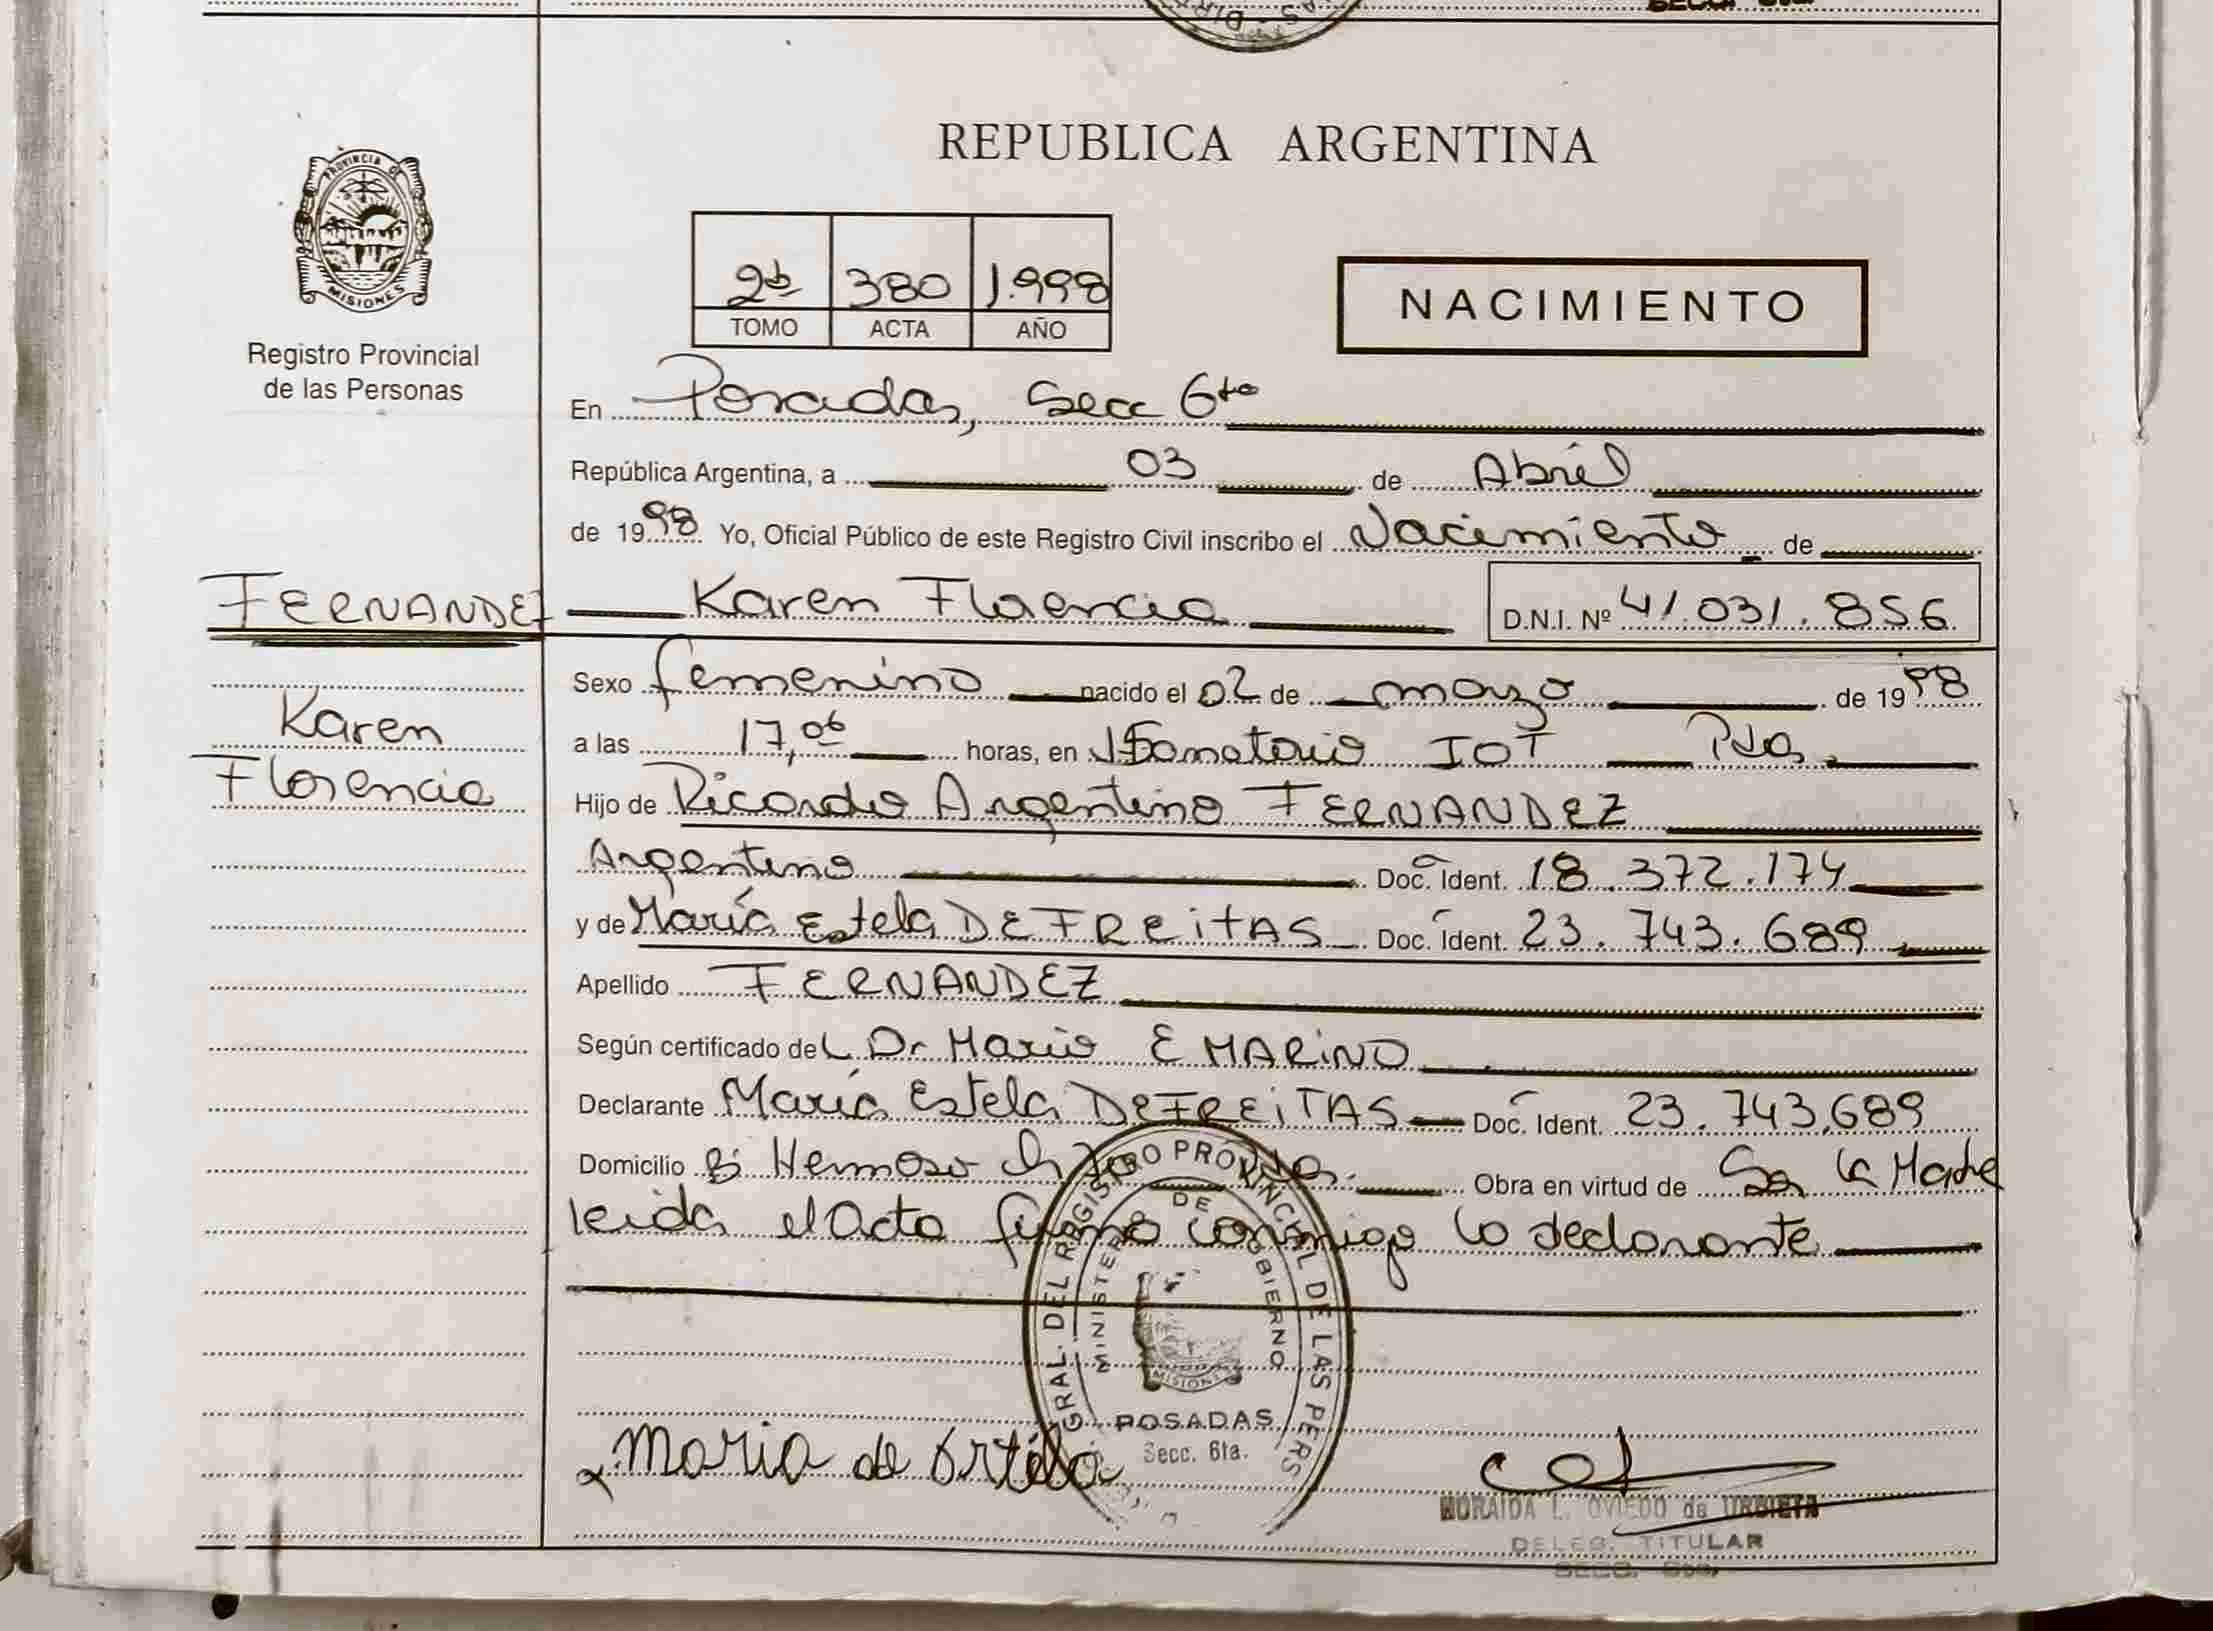 REPUBLICA ARGENTINA
PROVINCIA DE
MISIONES
Registro Provincial
de las Personas
380 1.998
TOMO ACTA AÑO
NACIMIENTO
En Posadas, Secc 6ta
República Argentina, a 03 de Abril
de 1998 Yo, Oficial Público de este Registro Civil inscribo el Nacimiento de
FERNANDEZ Karen Florencia D.N.I. Nº 41.031.856
Sexo femenino nacido el 02 de marzo de 1998
Karen
a las 17,06 horas, en Sanatorio IOT Pdas.
Florencia
Hijo de Ricardo Argentino FERNANDEZ
Argentino Doc. Ident. 18.372.174
y de María Estela DEFREITAS Doc. Ident. 23.743.689
Apellido FERNANDEZ
Según certificado del Dr Mario E MARINO
Declarante María Estela DEFREITAS Doc. Ident. 23.743.689
Domicilio Bº Hermoso Obra en virtud de Ser la Madre
leida el Acta firma conmigo la declarante
GRAL. DEL REGISTRO PROVINCIAL DE LAS PERS
MINISTERIO DE GOBIERNO
MISIONES
POSADAS
Secc. 6ta.
Maria de
MORAIDA L. OVIEDO de URBIETA
DELEG. TITULAR